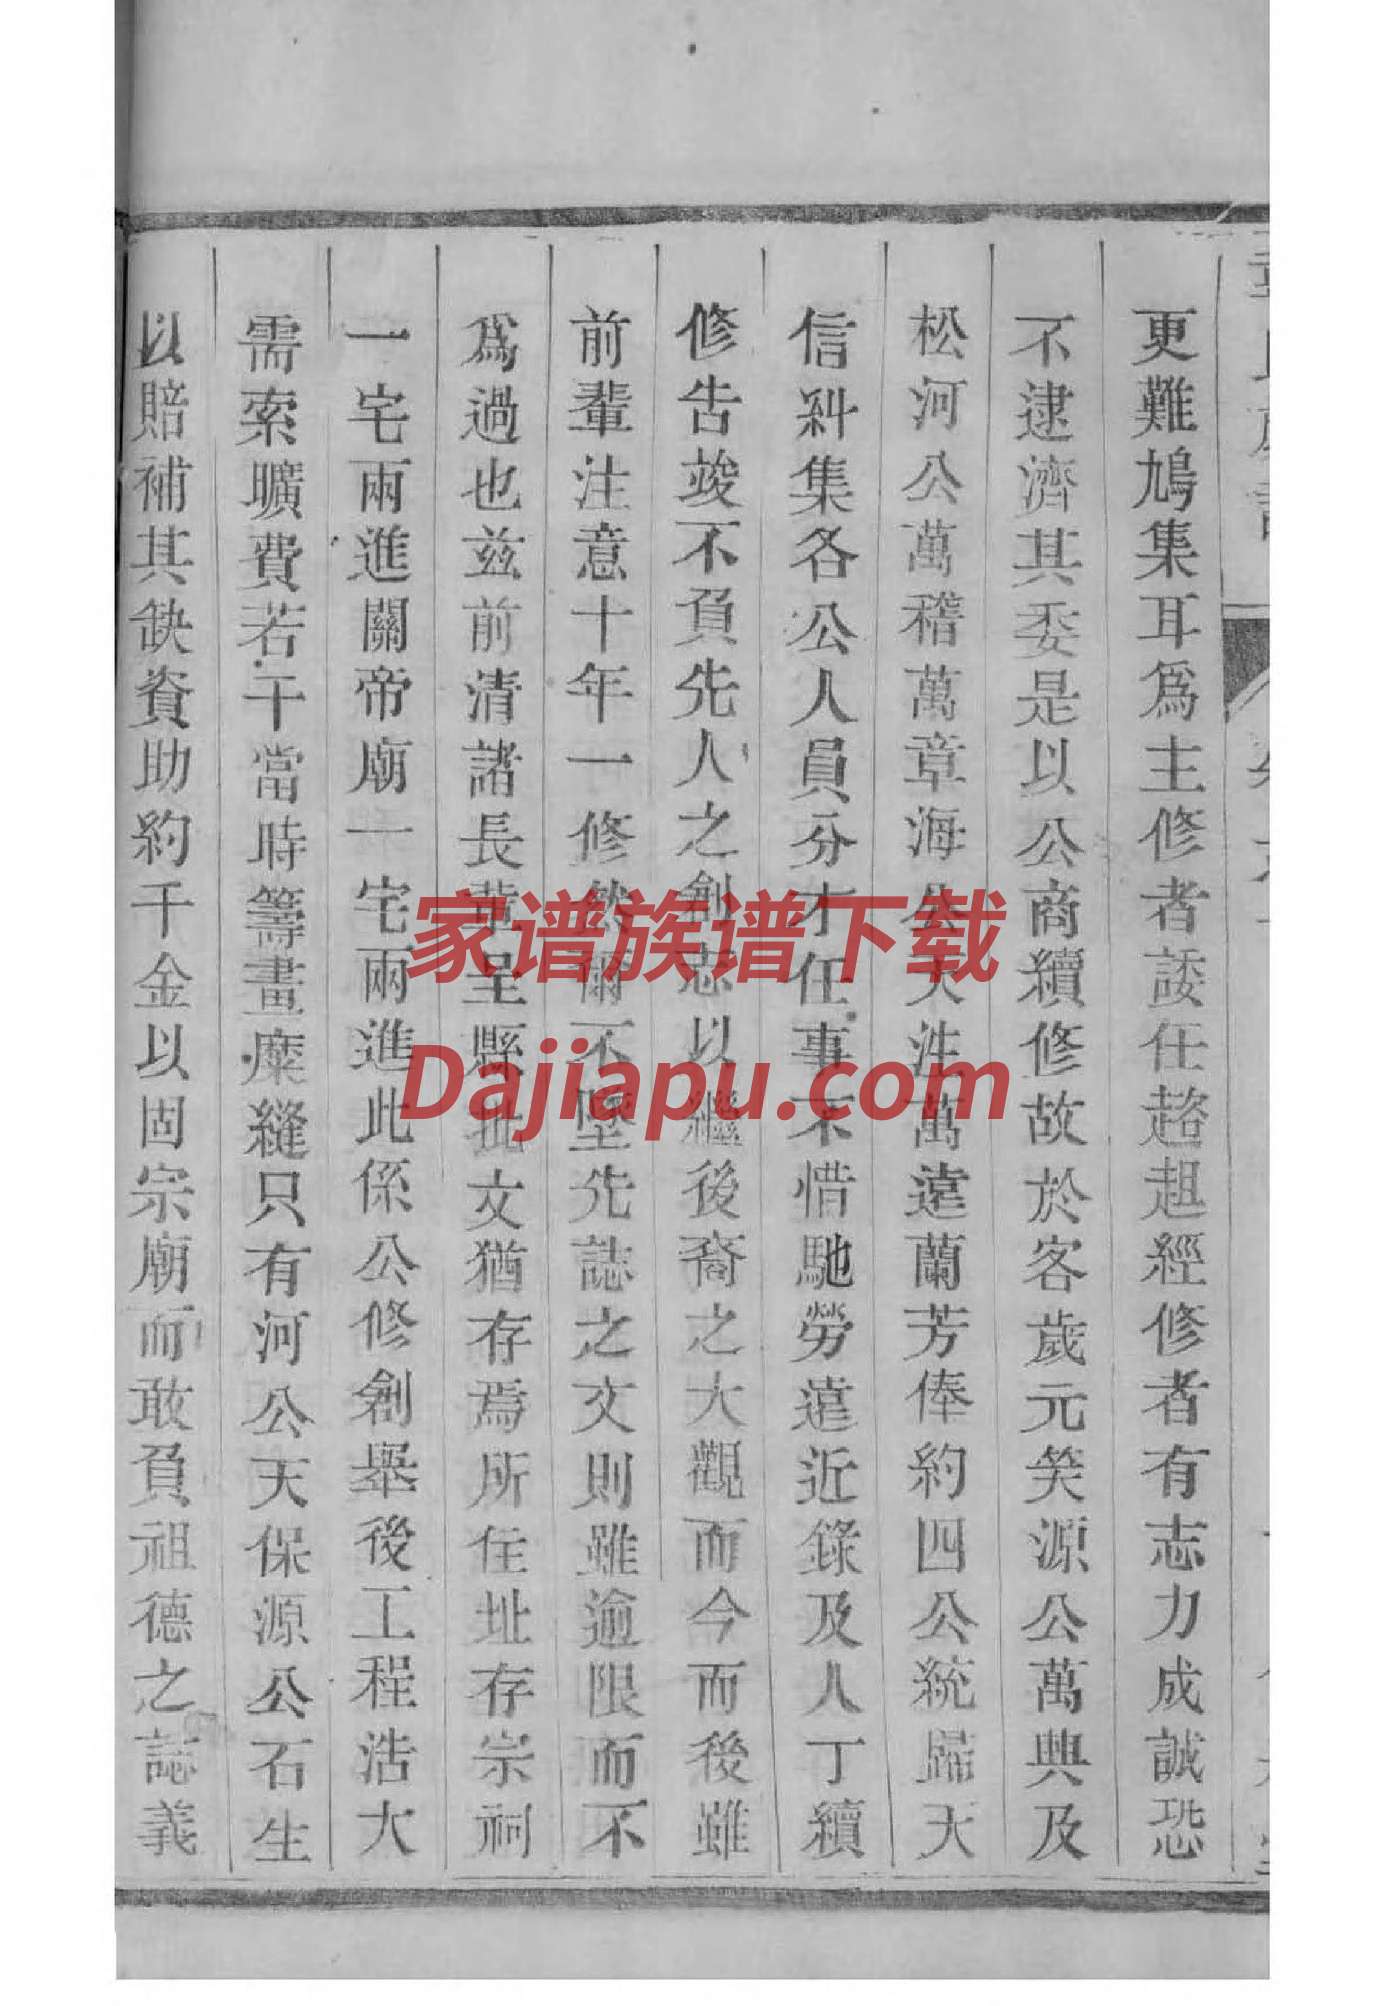 更難鳩集耳爲主修者諉任趦趄經修者有志力成誠恐
不逮濟其委是以公商續修故於客歲元笑源公萬典及
松河公萬稽萬章海公大泩萬遠蘭芳俸約四公統歸天
信糾集各公人員分才任事不惜馳勞遠近錄及人丁續
修告竣不負先人之創志以繼後裔之大觀而今而後雖
前輩注意十年一修然爾不墜先誌之文則雖逾限而不
爲過也兹前清諸長輩呈縣批文猶存焉所住址存宗祠
一宅兩進關帝廟一宅兩進此係公修創舉後工程浩大
需索曠費若干當時籌畫糜縫只有河公天保源公石生
以賠補其缺資助約千金以固宗廟而敢負祖德之誌義
家谱族谱下载
Dajiapu.com